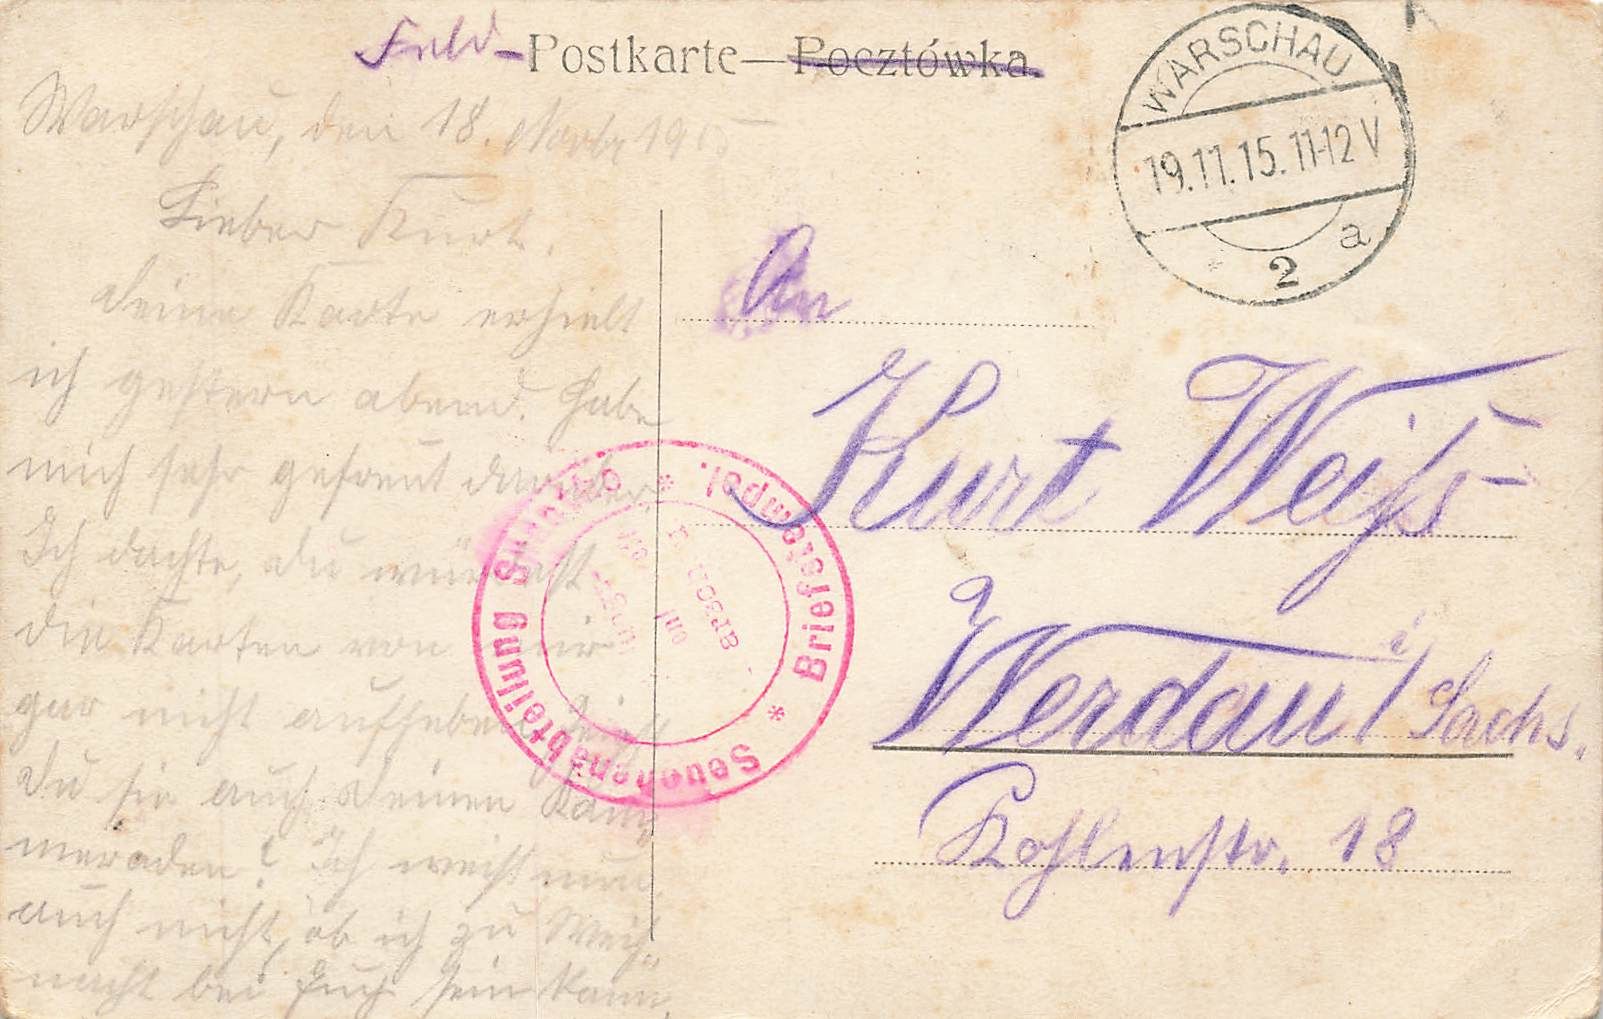 Feld-Postkarte — Pocztówka.
WARSCHAU
19.11.15.11-12 V
2 a
Warschau, den 18. Novbr 1915
Lieber Kurt.
Deine Karte erhielt
ich gestern abend. Habe
mich sehr gefreut darüber
Ich dachte, du würdest
die Karten von mir
gar nicht aufheben. Zeigst
Du sie auch Deinen Kam,,
meraden? Ich weiß nun
auch nicht, ob ich zu Weih,,
nacht bei Euch sein kann,
An
Kurt Weiß
Werdau i/ Sachs.
Kohlenstr. 18
Seuchenabteilung
* Briefstempel. *